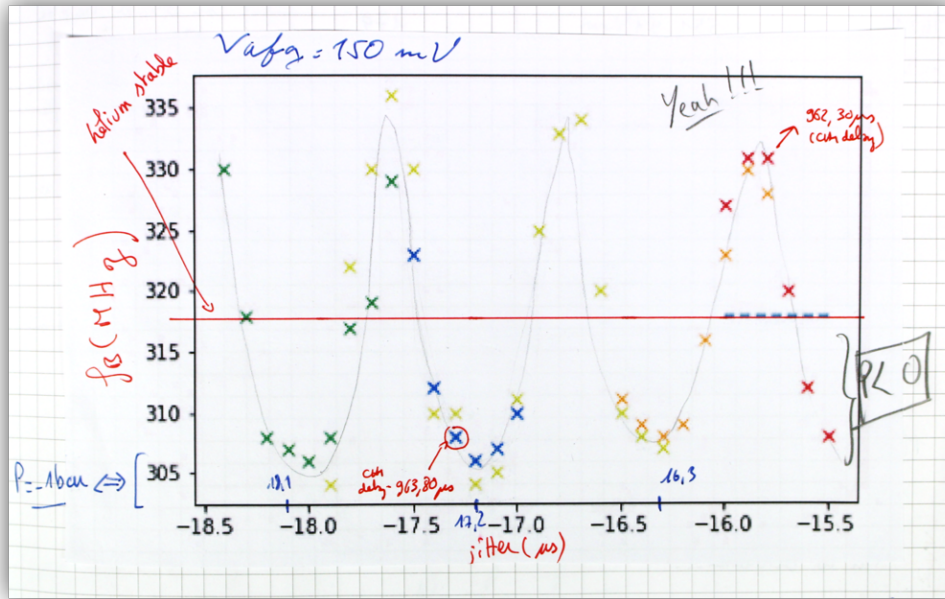 Vafg = 150 mV
helium stable
Yeah !!!
962,30 µs
(cam delay)
fB (MHz)
335
330
325
320
315
310
305
P < 0
P = -1bar <=> [
18,1
cam
delay = 963,80 µs
17,2
16,3
-18.5 -18.0 -17.5 -17.0 -16.5 -16.0 -15.5
jitter (µs)